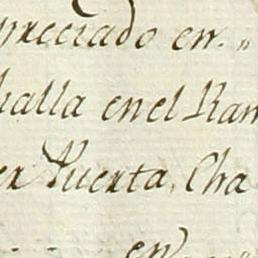 preciado en. "
halla en el Ram
er Puerta, Cha
en